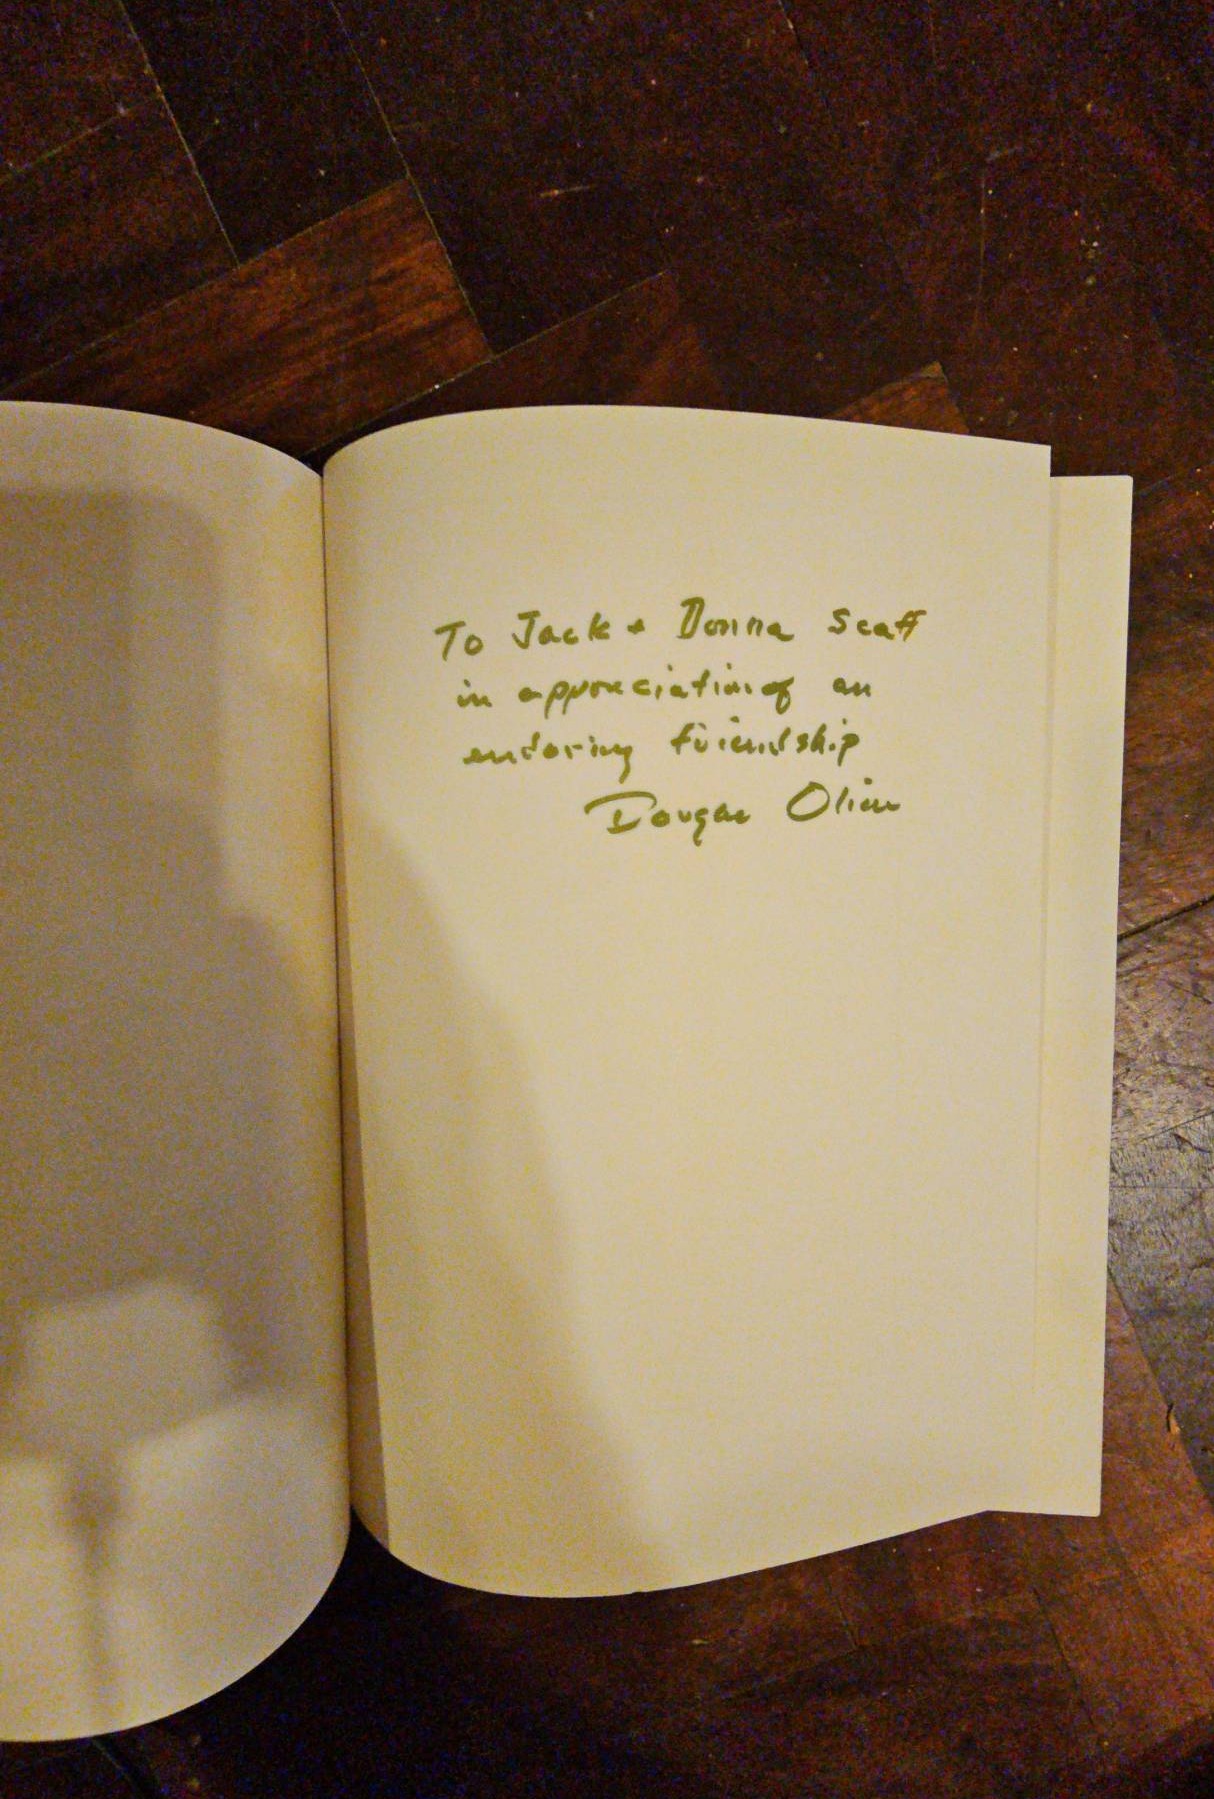 To Jack + Donna Scaff
in appreciation of an
enduring friendship